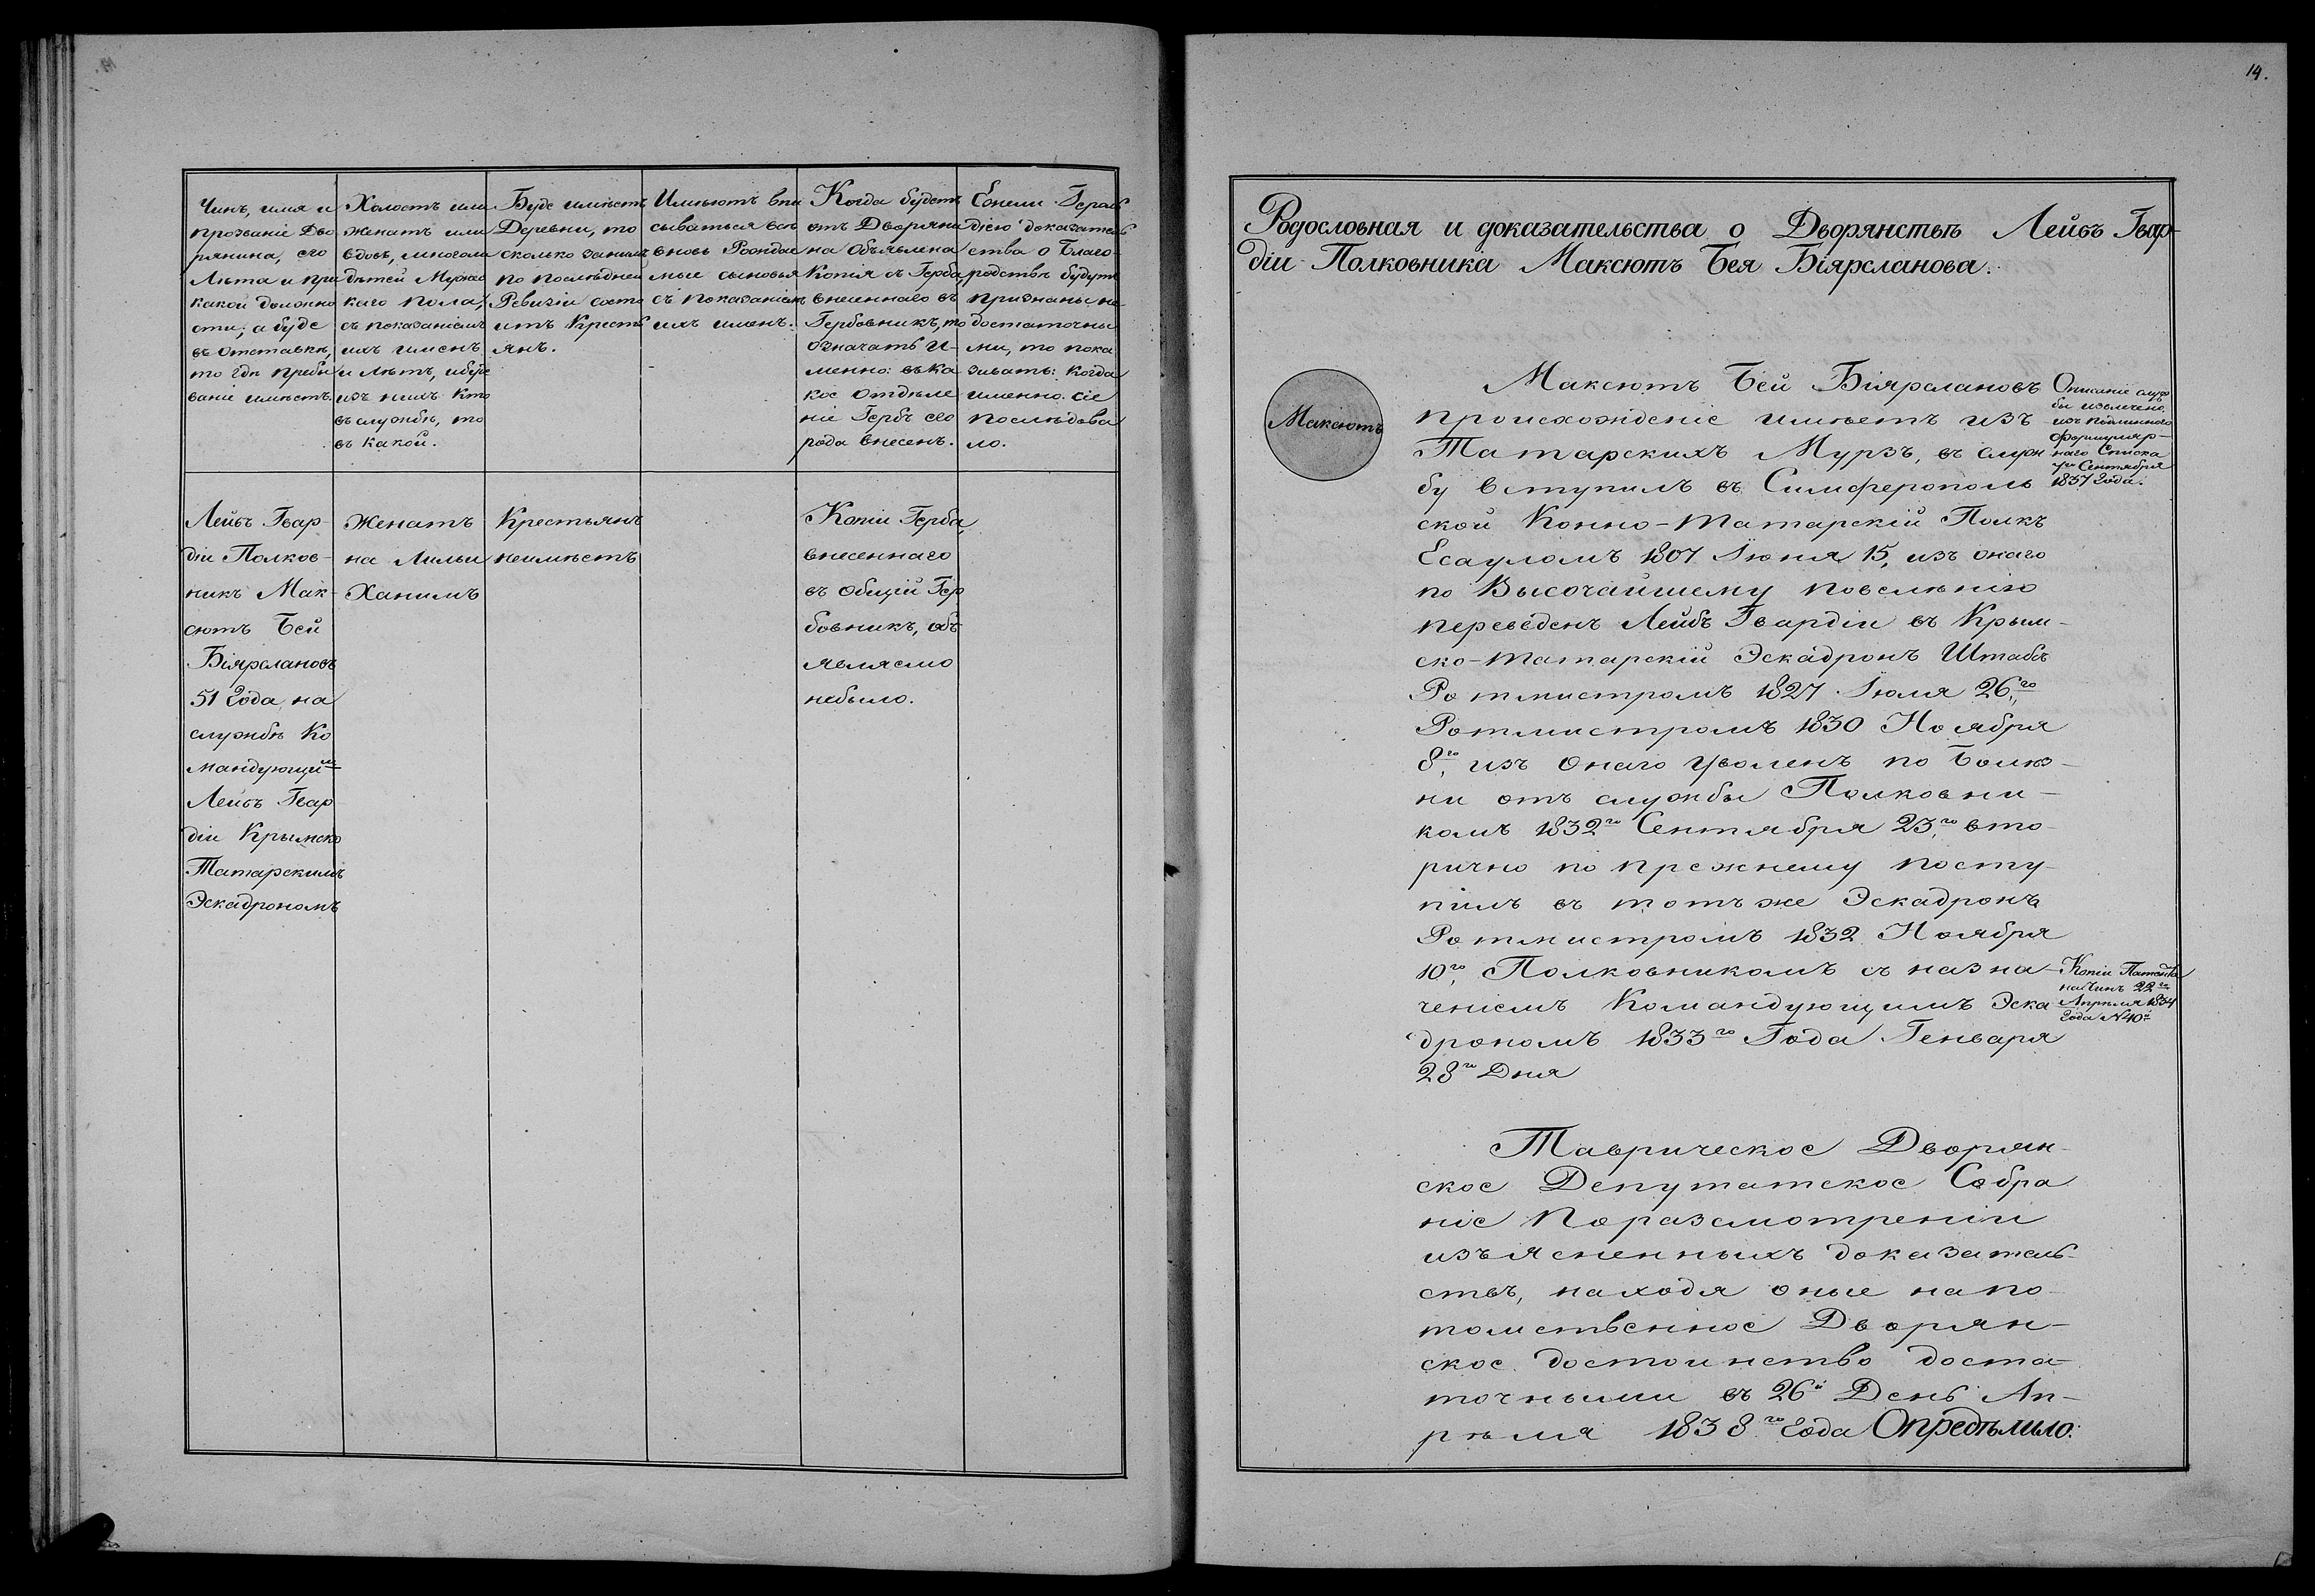 Чинъ, имя и
прозваніе Дво
рянина, его
Лѣта и при
какой должно
сти; а буде
въ отставкѣ,
то гдѣ пребы
ваніе имѣетъ.
Холостъ или
женатъ или
вдовъ, многоли
дѣтей Мужес
каго пола,
съ показаніемъ
ихъ именъ
и лѣтъ, и буде
изъ нихъ кто
въ службѣ, то
въ какой.
Буде имѣетъ
Деревни, то
сколько за нимъ
по послѣдней
Ревизіи состо
итъ Кресть
янъ.
Имѣютъ впи
сываться всѣ
вновь Рожда
мые сыновья
съ показаніемъ
ихъ именъ.
Когда будетъ
отъ Дворяни
на объявлена
Копія съ Герба,
внесеннаго въ
Гербовникъ, то
означать и
менно: въ ка
кое отдѣле
ніе Гербъ его
рода внесенъ.
Ежели Героль
діею доказатель
ства о Благо-
родствѣ будутъ
признаны не
достаточны
ми, то пока
зывать: когда
именно сіе
послѣдова
ло.
Лейбъ Гвар-
діи Полков-
никъ Мак-
сютъ Бей
Біярслановъ
51 года, на
службѣ Ко
мандующимъ
Лейбъ Гвар
діи Крымско
Татарскимъ
Эскадрономъ
Женатъ
на Лильи
Ханимъ
Крестьянъ
неимѣетъ
Копіи Герба,
внесеннаго
въ общій Гер
бовникъ, объ
являемо
небыло.
14.
Родословная и доказательства о Дворянствѣ Лейбъ Гвар-
діи Полковника Максютъ Бея Біярсланова.
Максютъ
Максютъ Бей Біярслановъ
происхожденіе имѣетъ изъ
Татарскихъ Мурзъ, въ служ
бу вступилъ въ Симферополь
ской Конно-Татарскій Полкъ
Есауломъ 1807 Іюня 15, изъ онаго
по Высочайшему повелѣнію
переведенъ Лейбъ Гвардіи въ Крым-
ско-Татарскій Эскадронъ Штабъ
Ротмистромъ 1827 Іюля 26,го
Ротмистромъ 1830 Ноября
8,го изъ онаго уволенъ по Болѣз-
ни отъ службы Полковни-
комъ 1832го Сентября 23,го вто-
рично по прежнему посту-
пилъ въ тотъ же Эскадронъ
Ротмистромъ 1832 Ноября
10,го Полковникомъ съ назна-
ченіемъ Командующимъ Эска
дрономъ 1833го Года Генваря
28го Дня
Описаніе служ
бы извлечено
изъ подлиннаго
формуляр-
наго Списка
7го Сентября
1837 года.
Копіи Патента
на Чинъ 22го
Апрѣля 1834
года №40й
Таврическое Дворян-
ское Депутатское Собра
ніе по разсмотреніи
изъясненныхъ доказатель-
ствъ, находя оные на по-
томственное Дворян-
ское достоинство доста-
точными въ 26й День Ап-
рѣля 1838го года Опредѣлило: